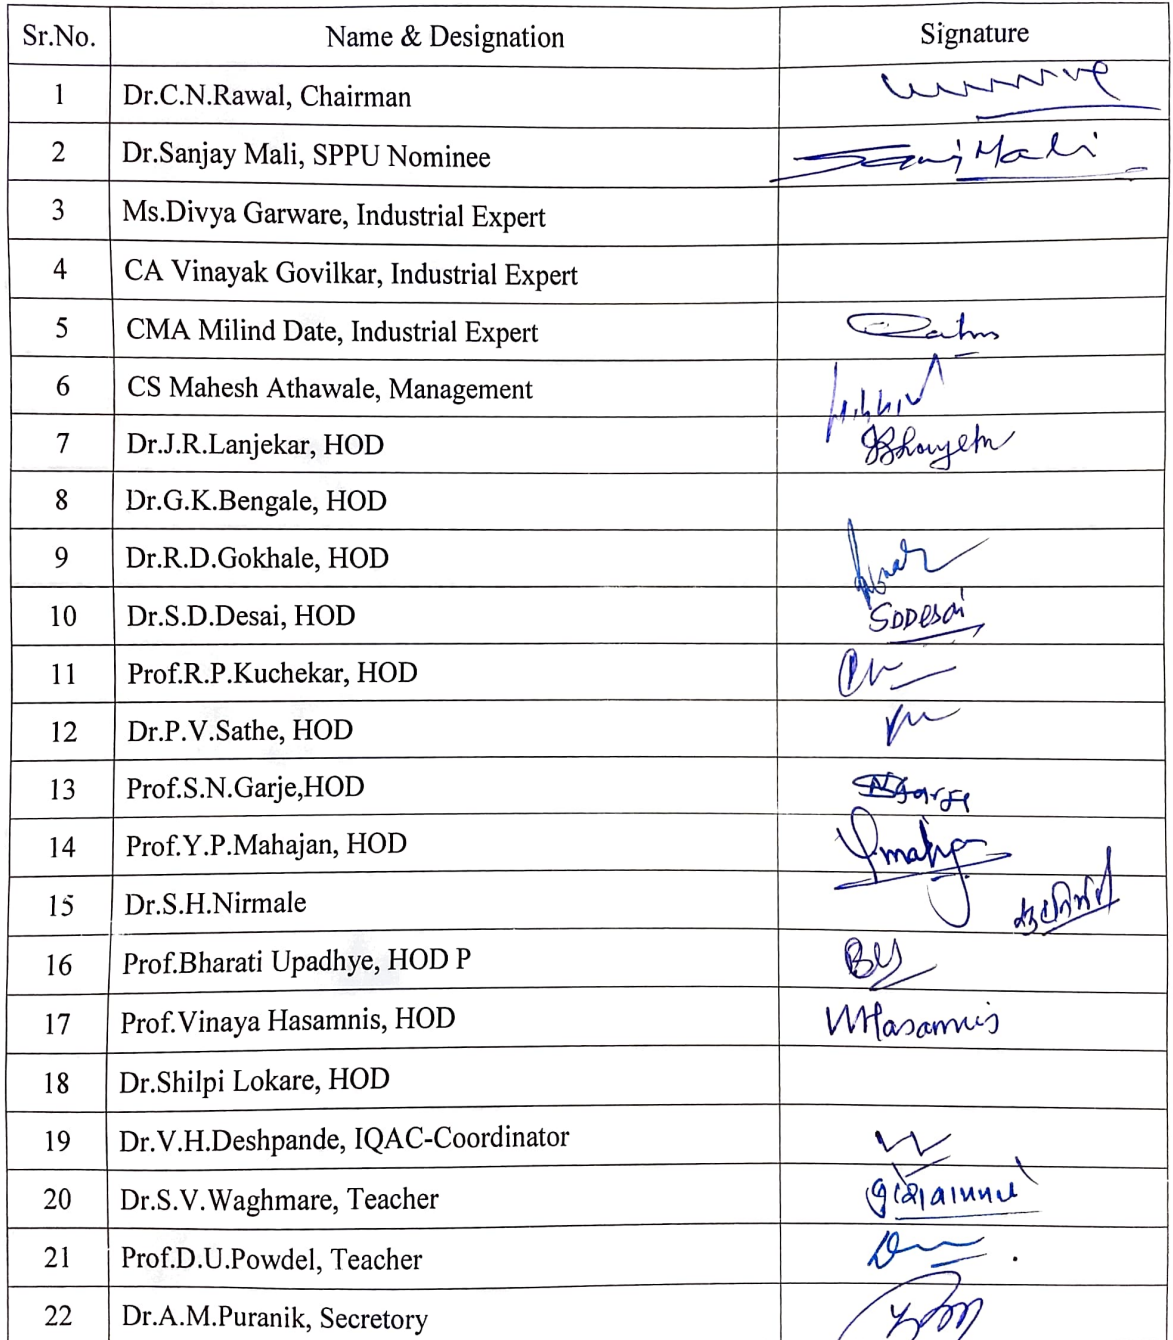 Sr.No. Name & Designation Signature
1 Dr.C.N.Rawal, Chairman
2 Dr.Sanjay Mali, SPPU Nominee Mali
3 Ms.Divya Garware, Industrial Expert
4 CA Vinayak Govilkar, Industrial Expert
5 CMA Milind Date, Industrial Expert
6 CS Mahesh Athawale, Management
7 Dr.J.R.Lanjekar, HOD
8 Dr.G.K.Bengale, HOD
9 Dr.R.D.Gokhale, HOD
10 Dr.S.D.Desai, HOD SDDesai
11 Prof.R.P.Kuchekar, HOD
12 Dr.P.V.Sathe, HOD
13 Prof.S.N.Garje,HOD
14 Prof.Y.P.Mahajan, HOD
15 Dr.S.H.Nirmale
16 Prof.Bharati Upadhye, HOD P BU
17 Prof.Vinaya Hasamnis, HOD VHasamnis
18 Dr.Shilpi Lokare, HOD
19 Dr.V.H.Deshpande, IQAC-Coordinator
20 Dr.S.V.Waghmare, Teacher
21 Prof.D.U.Powdel, Teacher
22 Dr.A.M.Puranik, Secretory